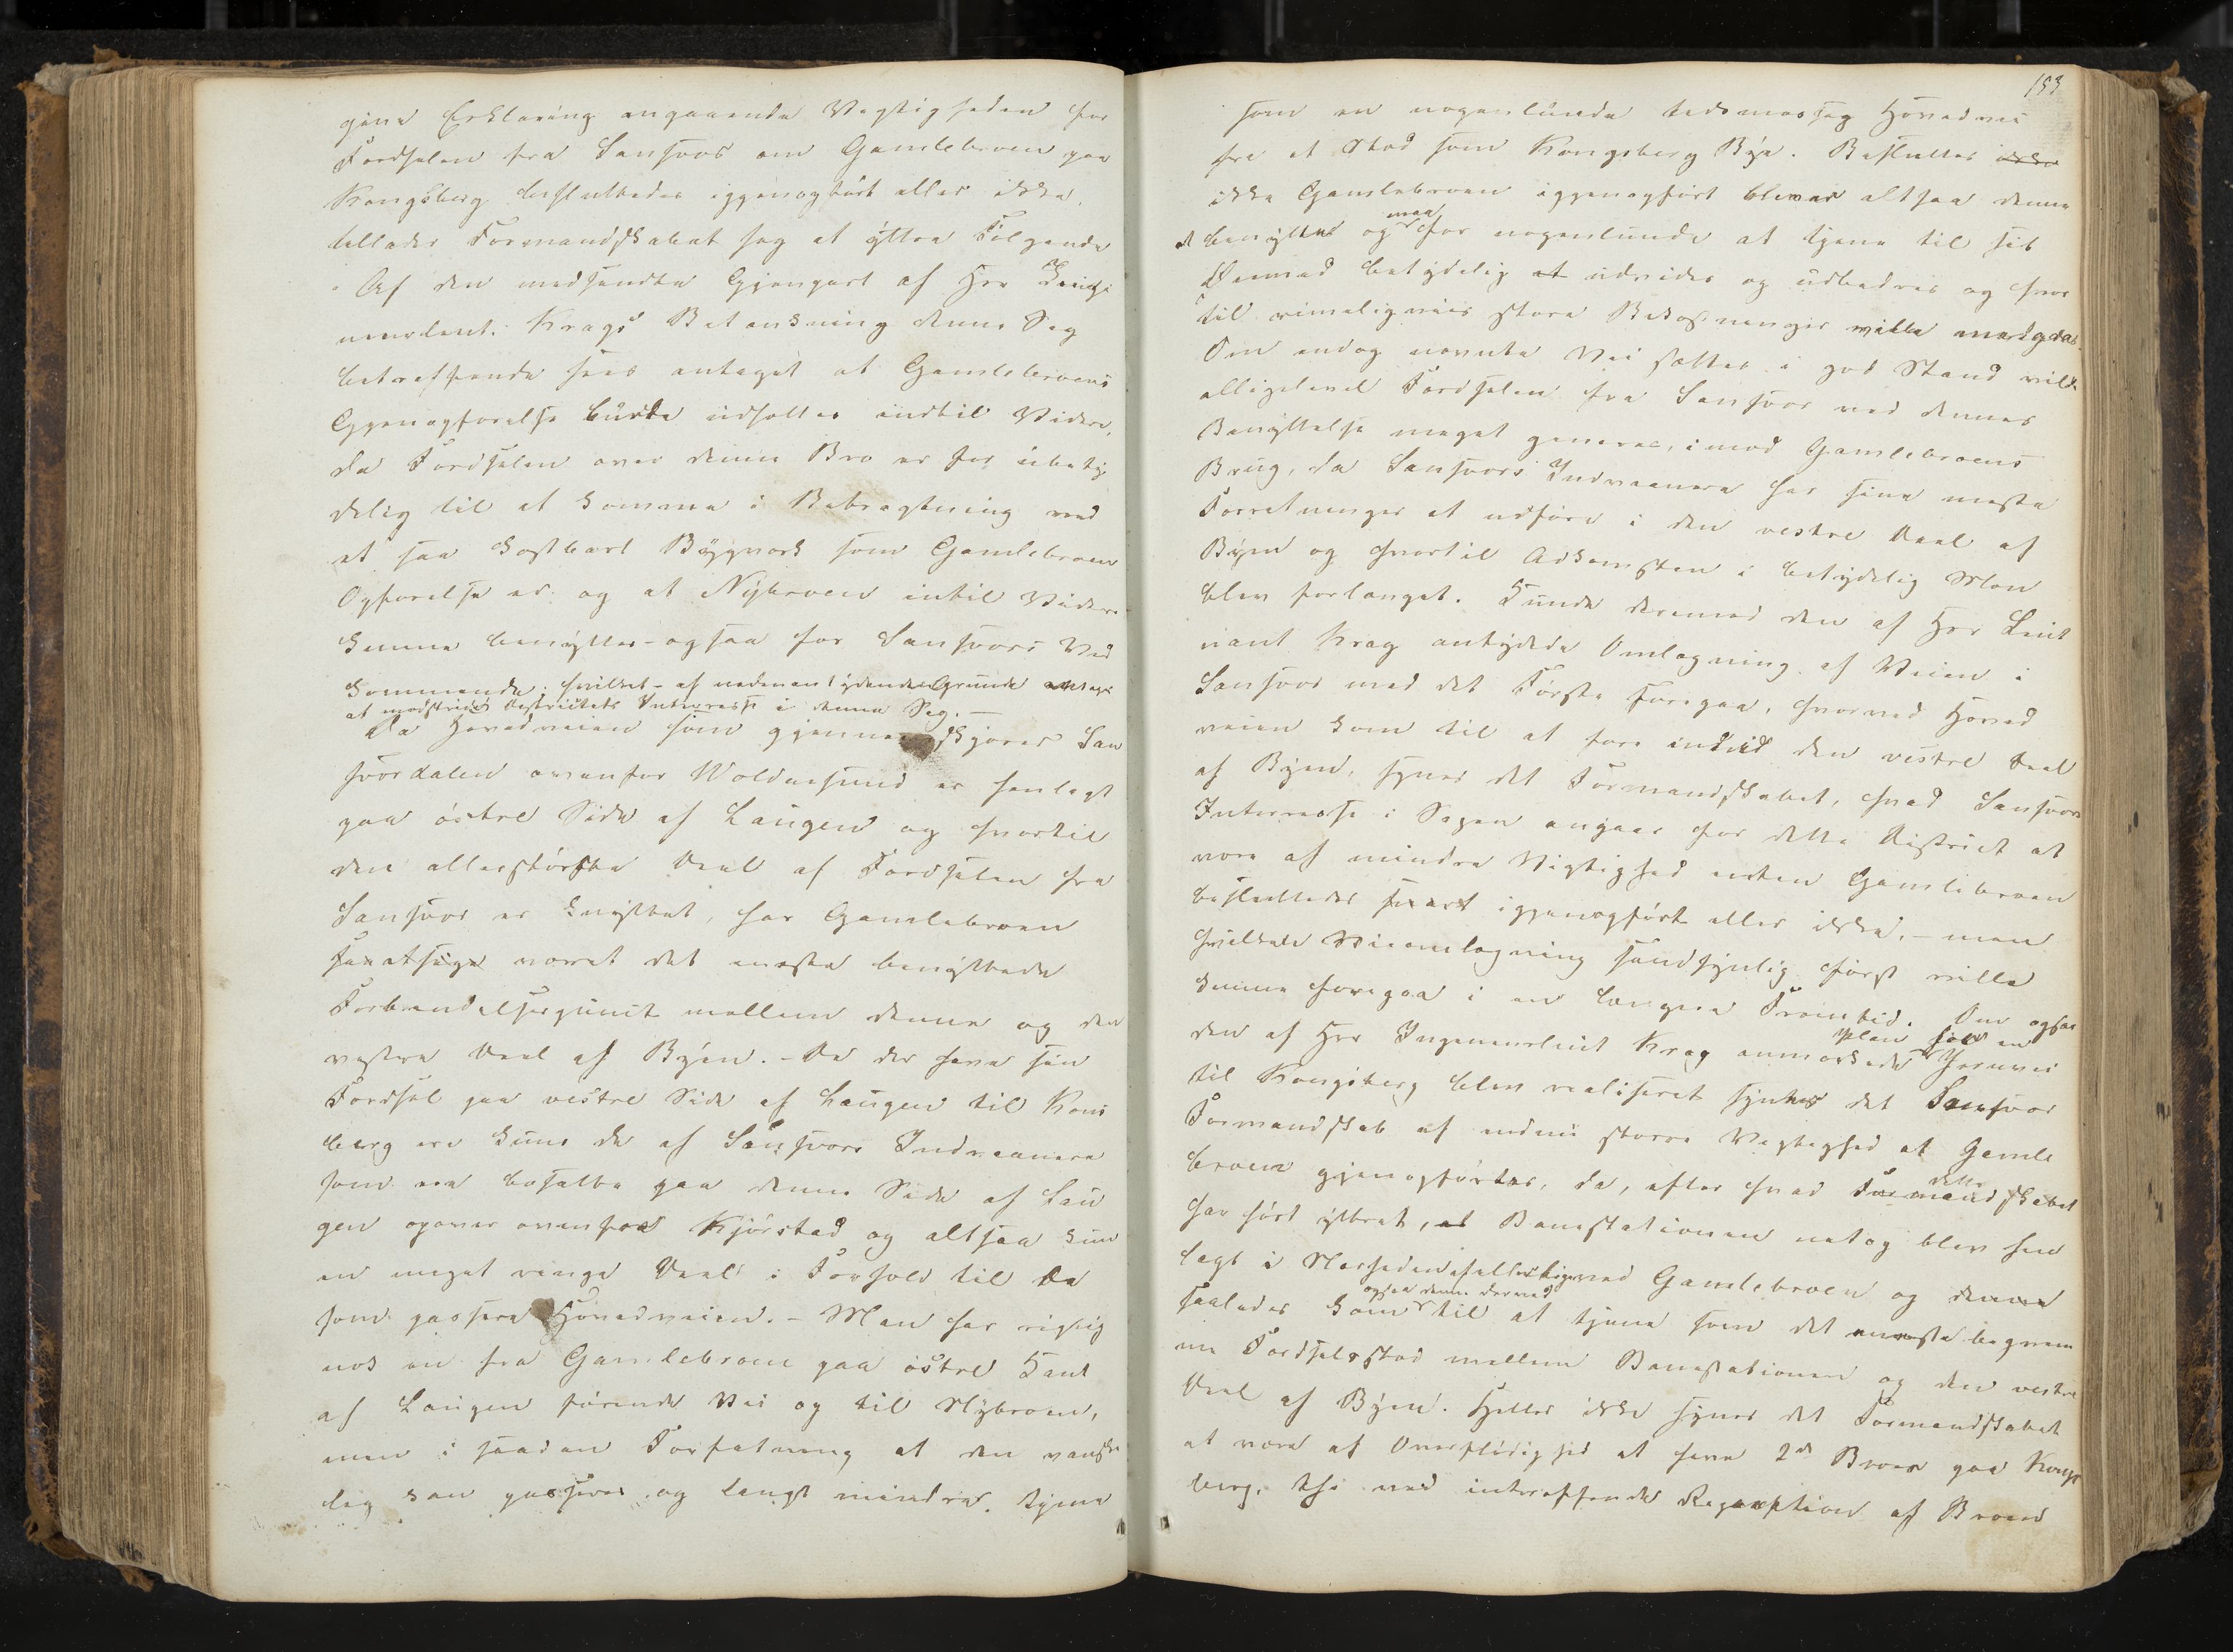 give Erklæring angaaende Vigtigheden for
Færdselen fra Sansvær om Gamlebroen paa
Kongsberg besluttedes igjenopført eller ikke,
tillader Formandskabet sig at yttre Følgende
Af den medsendte Gjenpart af Hr Inge
nieurleut: Krags Betænkning denne Sag
betræffende sees antaget at Gamlebroens
Gjenopførelse burde udsættes indtil Videre,
da Færdselen over denne Bro er for ubety
delig til at komme i Betragtning ved
et saa kostbart Bygværk som Gamlebroens
Opførelse er og at Nybroen intil Videre
kunne benyttes ogsaa for Sansværs Ved
kommende; hvilket af nedenantydende Grunde antages
at modstride Districtets Interesse i denne Sag.—
Da Hovedveien som gjennemskjærer San
sværdalen ovenfor Woldersund er henlagt
paa østre Side af Laugen og hvortil
den allerstørste Deel af Færdselen fra
Sansvær er knyttet, har Gamlebroen
været det meste benyttede
Forbindelsespunct mellem denne og den
vestre Deel af Byen.- De der have sin
Færdsel paa vestre Side af Laugen til Kons
berg ere kuns de af Sansværs Indvaanere
som ere bosatte paa denne Side af Lau
gen opover ovenfor Kjørstad og altsaa kun
en meget ringe Deel i Forhold til De
som passere Hovedveien.- Man har rigtig
nok en fra Gamlebroen paa østre Kant
af Laugen førende Vei og til Nybroen,
men i saadan Forfatning at den vanske
lig kan passeres og langt mindre tjene
153
som en nogenlunde tidsmæssig Hovedvei
fra et Stad som Kongsberg Bye. Besluttes
ikke Gamlebroen igjenopført blever altsaa denne
at benytte og maa for nogenlunde at tjene til sit
Øiemed betydelig udvides og udbedres og hvor
til rimeligviis store Bekostninger ville medgaa.
Om endog nævnte Vei sættes i god Stand vilde
alligevel Færdselen fra Sansvær ved dennes
Benyttelse meget generes, imod Gamlebroens
Brug, da Sansværs Indvaanere har sine meste
Forretninger at udføre i den vestre Deel af
Byen og hvortil Adkomsten i betydelig Mon
blev forlænget. Kunde derimod den af Hr Leut
nant Krag antydede Omlægning af Veien i
Sansvær med det Første foregaa, hvorved Hoved
veien kom til at føre indtil den vestre Deel
af Byen, synes det Formandskabet, hvad Sansværs
Interesse i Sagen angaar for dette District at
være af mindre Vigtighed enten Gamlebroen
besluttedes snart igjenopført eller ikke,- men
hvilken Veiomlægning sandsynlig først ville
kunne foregaa i en længere Fremtid. Om ogsaa
den af Hr Ingenieurleut Krag anmærkede Plan for en Jernvei
til Kongsberg blev realiseret syntes det Sansvær
Formandskab af endnu større Vigtighed at Gamle
broen gjenopførtes, da, efter hvad dette
har hørt yttret, Banestationen netop blev hen
lagt i Nærheden ved Gamlebroen og
saaledes kom ogsaa denne derved til at tjene som det meste beqvem
me Færdselsstad mellem Banestationen og den vestre
Deel af Byen. Heller ikke synes det Formandskabet
at være af Overflødighed at have 2de Broer paa Kongs
berg, thi ved intræffende Reparation af Broen